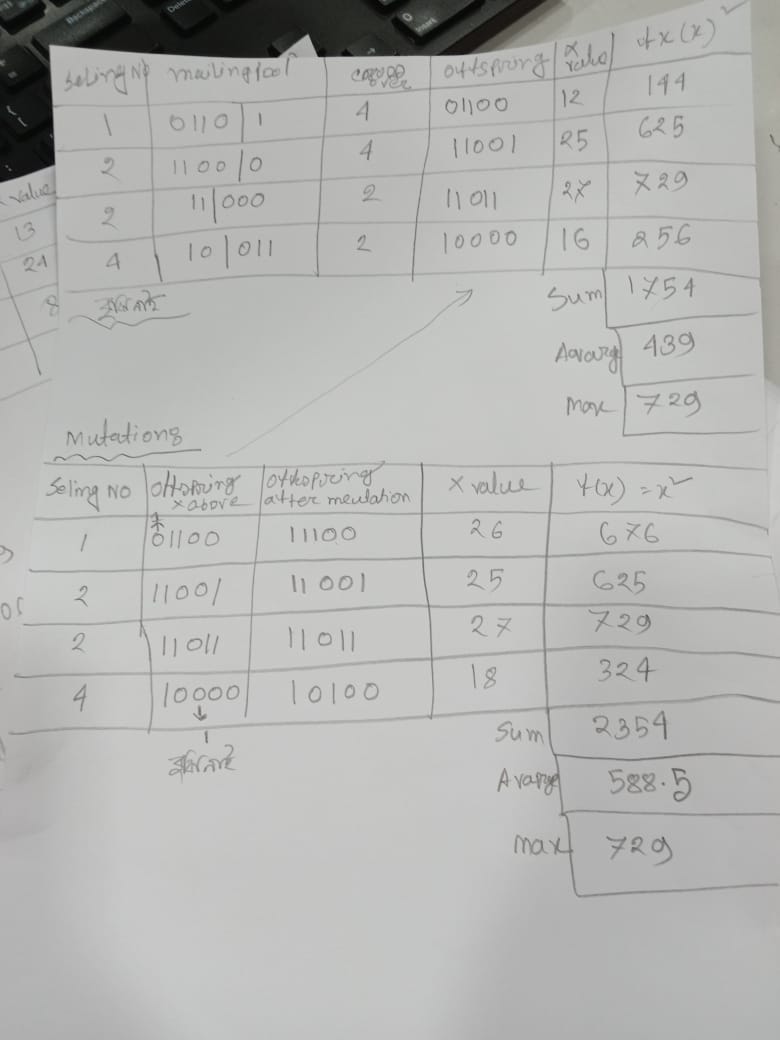 Seling No mailing pool offspring x value fx(x)²
1 0110|1 4 01100 12 144
2 1100|0 4 11001 25 625
2 11|000 2 11011 27 729
4 10|011 2 10000 16 256
Sum 1754
Aavarg 439
max 729
value
13
24
8
Mutations
Seling NO offspring x above offspring after meulation X value f(x) = x²
1 01100 11100 26 676
2 11001 11 001 25 625
2 11011 11011 27 729
4 10000 10100 18 324
Sum 2354
Avarge 588.5
max 729